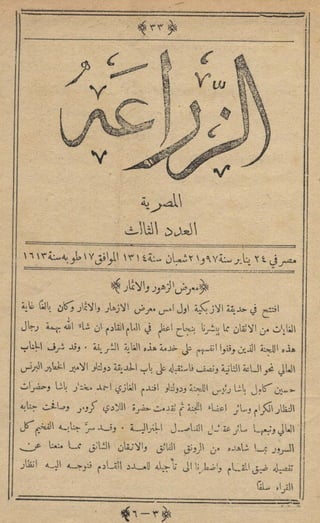 ﴿ ٣٣ ﴾
الزراعة
المصرية
العدد الثالث
مصر في ٢٤ يناير سنة ٩٧ و٢١ شعبان سنة ١٣١٤ الموافق ١٧ طوبه سنة ١٦١٣
﴿ معرض الزهور والاثمار ﴾
افتتح في حديقة الازبكية اول امس معرض الازهار والاثمار وكان بالغًا غاية
الغايات من الاتقان مما يبشرنا بنجاح اعظم في العام القادم ان شاء الله بهمة رجال
هذه اللجنة الذين وقفوا انفسهم على خدمة هذه الغاية الشريفة ٠ وقد شرف الجناب
العالي نحو الساعة الثانية ونصف فاستقبله على باب الحديقة دولتلو الامير الخطير البرنس
حسين كامل باشا رئيس اللجنة ودولتلو افندم الغازي احمد مختار باشا وحضرات
النظار الكرام وسائر اعضاء اللجنة ثم تقدمت حضرة اللادي كرومر وصافحت جنابه
العالي وتبعها سائر عقائل القناصل الجنرالية ٠ وقد سر جنابه الفخيم كل
السرور بما شاهده من الرونق الفائق والاتقان الشائق مما منعنا عن
تفصيله ضيق المقام واضطرنا الى تأجيله للعدد القادم فنوجه اليه انظار
القراء سلفًا
﴿ ٣ — ٦ ﴾